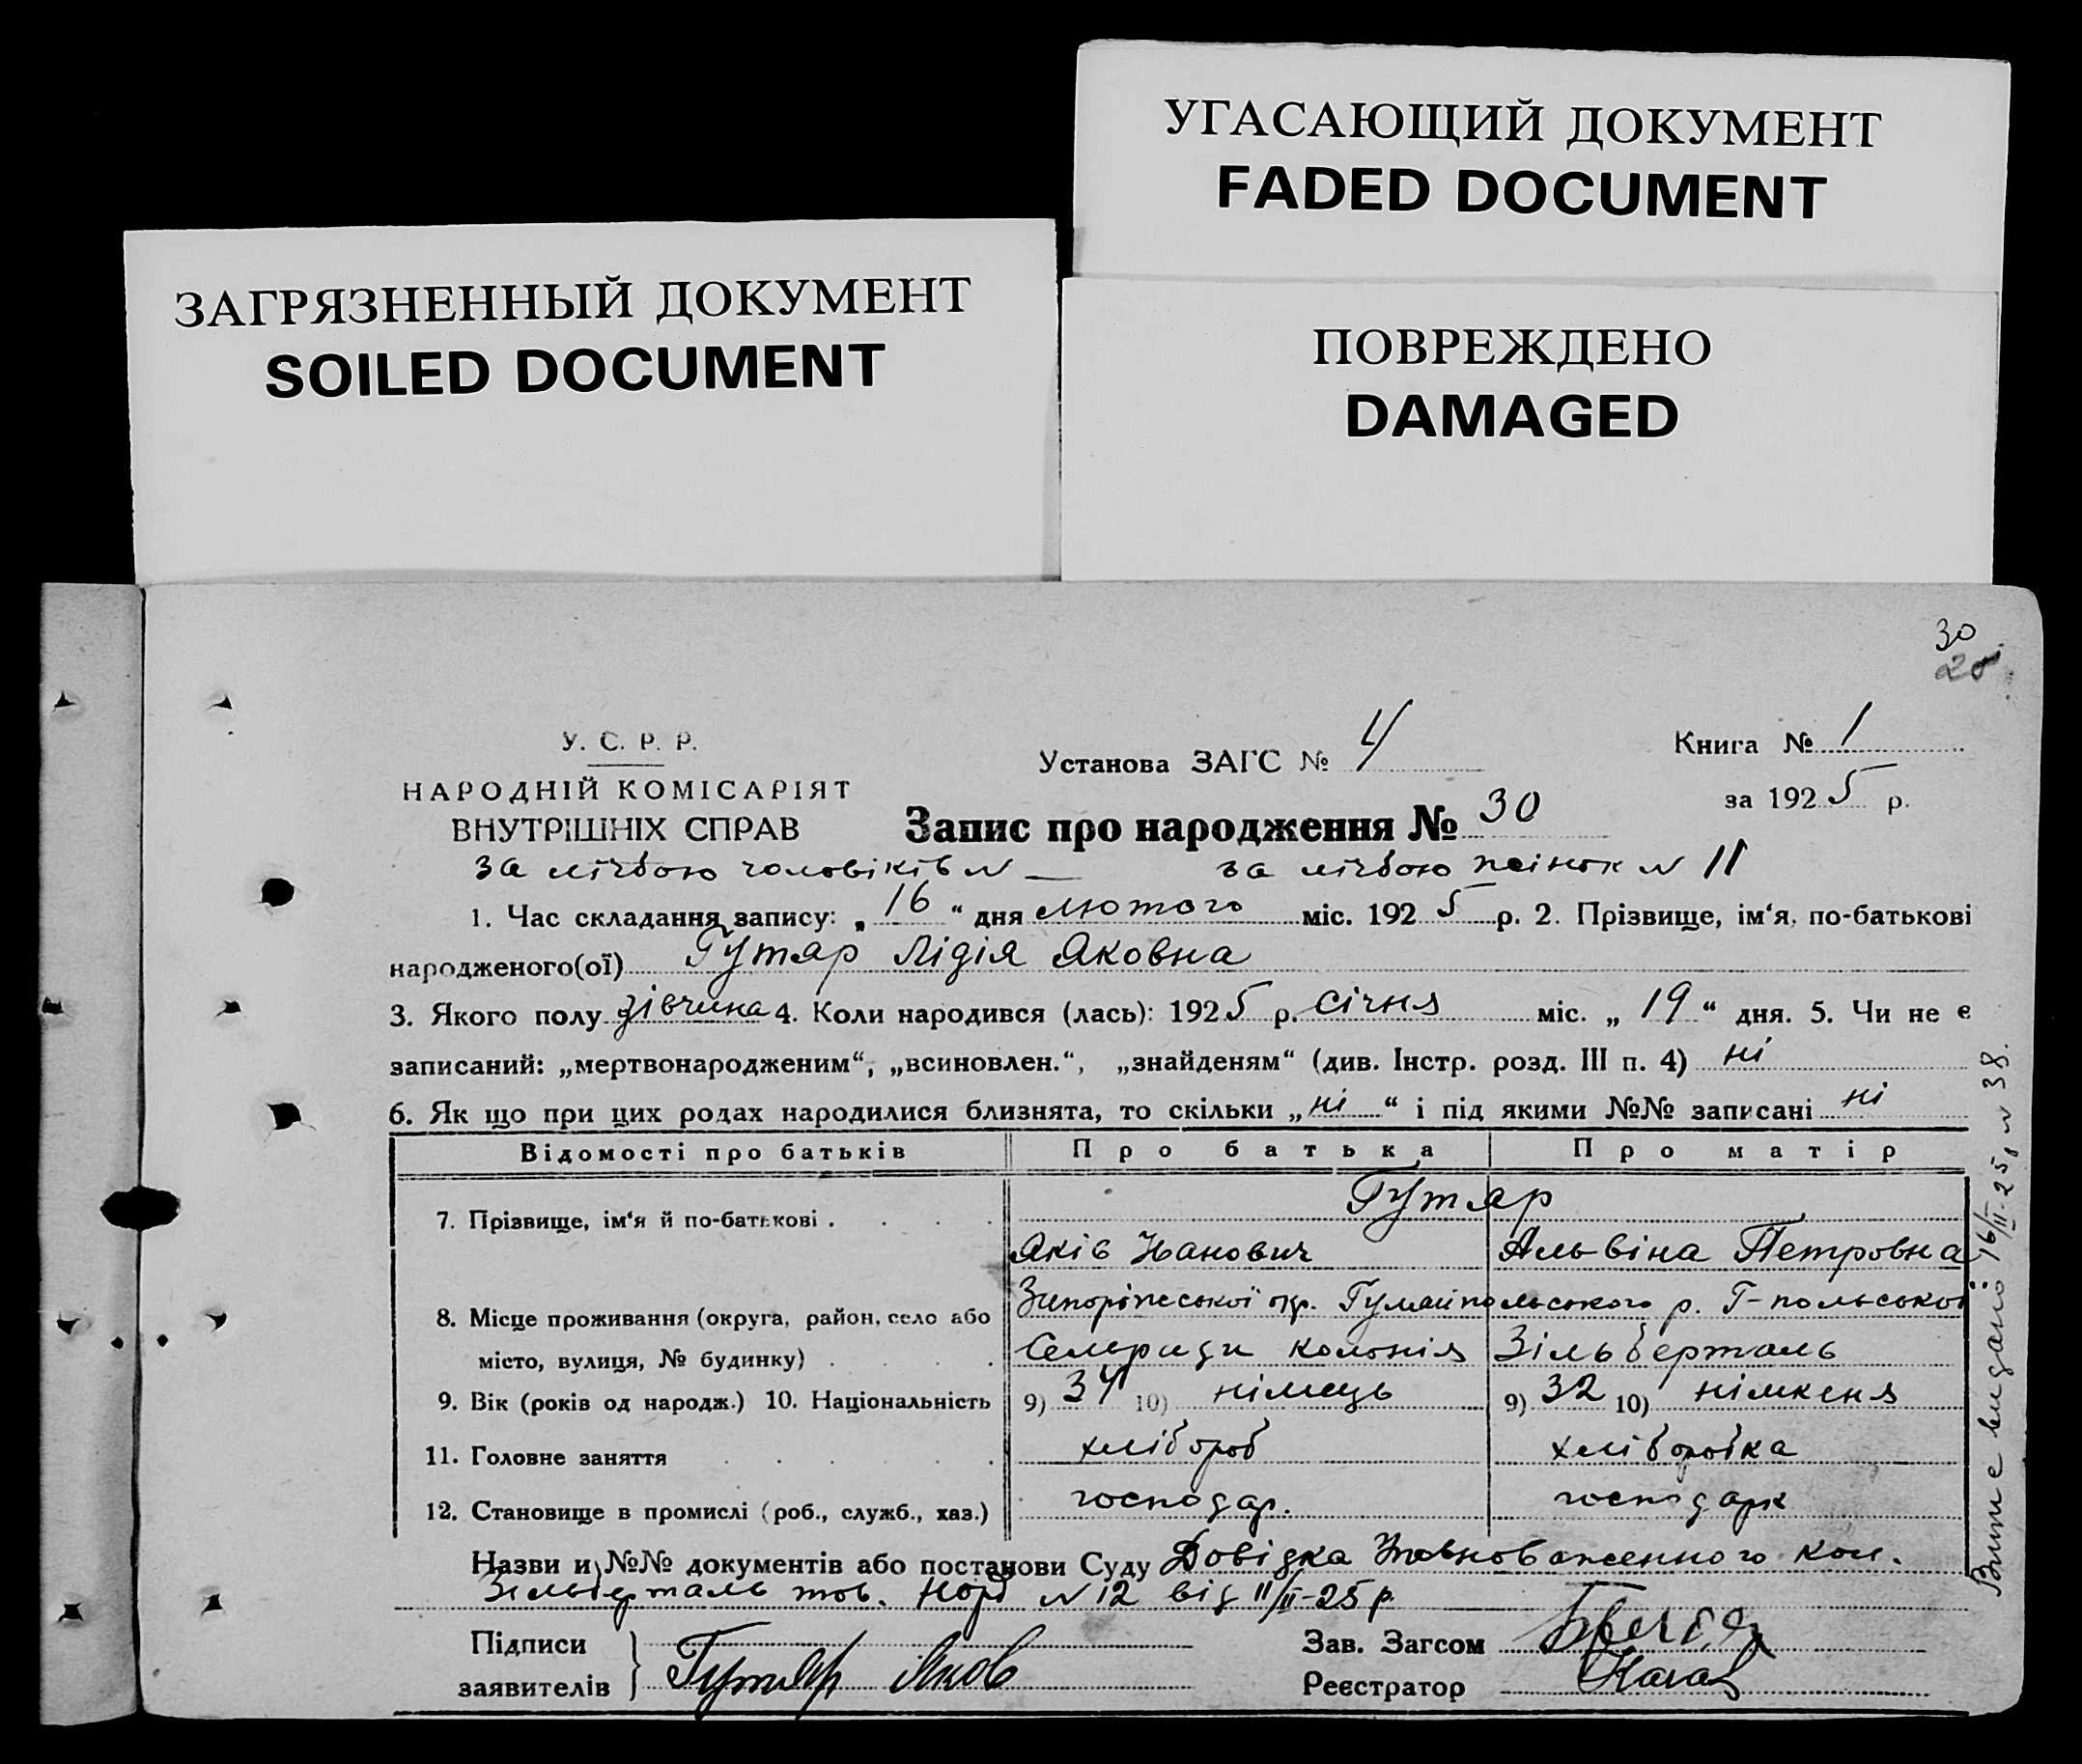 УГАСАЮЩИЙ ДОКУМЕНТ
FADED DOCUMENT
ЗАГРЯЗНЕННЫЙ ДОКУМЕНТ
SOILED DOCUMENT
ПОВРЕЖДЕНО
DAMAGED
30
У. С. Р. Р.
НАРОДНІЙ КОМІСАРІЯТ
ВНУТРІШНІХ СПРАВ
Установа ЗАГС № 4
Книга № 1
за 1925 р.
Запис про народження № 30
за лічбою чоловіків N — за лічбою жінок N 11
1. Час складання запису: „16“ дня лютого міс. 1925 р. 2. Прізвище, ім‘я, по-батькові
народженого(ої) Гутяр Лідія Яковна
3. Якого полу дівчина 4. Коли народився (лась): 1925 р. січня міс. „19“ дня. 5. Чи не є
записаний: „мертвонародженим“, „всиновлен.“, „знайденям“ (див. Інстр. розд. III п. 4) ні
6. Як що при цих родах народилися близнята, то скільки „ні“ і під якими №№ записані ні
Відомості про батьків Про батька Про матір
7. Прізвище, ім‘я й по-батькові . Гутяр
Яків Іванович Альвіна Петровна
Запоріжської окр. Гуляйпольського р. Г-польської
8. Місце проживання (округа, район, село або
місто, вулиця, № будинку) Сельради колонія Зільберталь
9. Вік (років од народж.) 10. Національність 9) 34 10) німець 9) 32 10) німкеня
11. Головне заняття хлібороб хліборобка
12. Становище в промислі (роб., служб., хаз.) господар. господарк
Назви и №№ документів або постанови Суду Довідка Уповноваженного кол.
Зільберталь тов. Норд N 12 від 11/II-25 р.
Підписи
заявителів Гутяр Яков
Зав. Загсом
Реєстратор
видано 16/II-25 N 38.